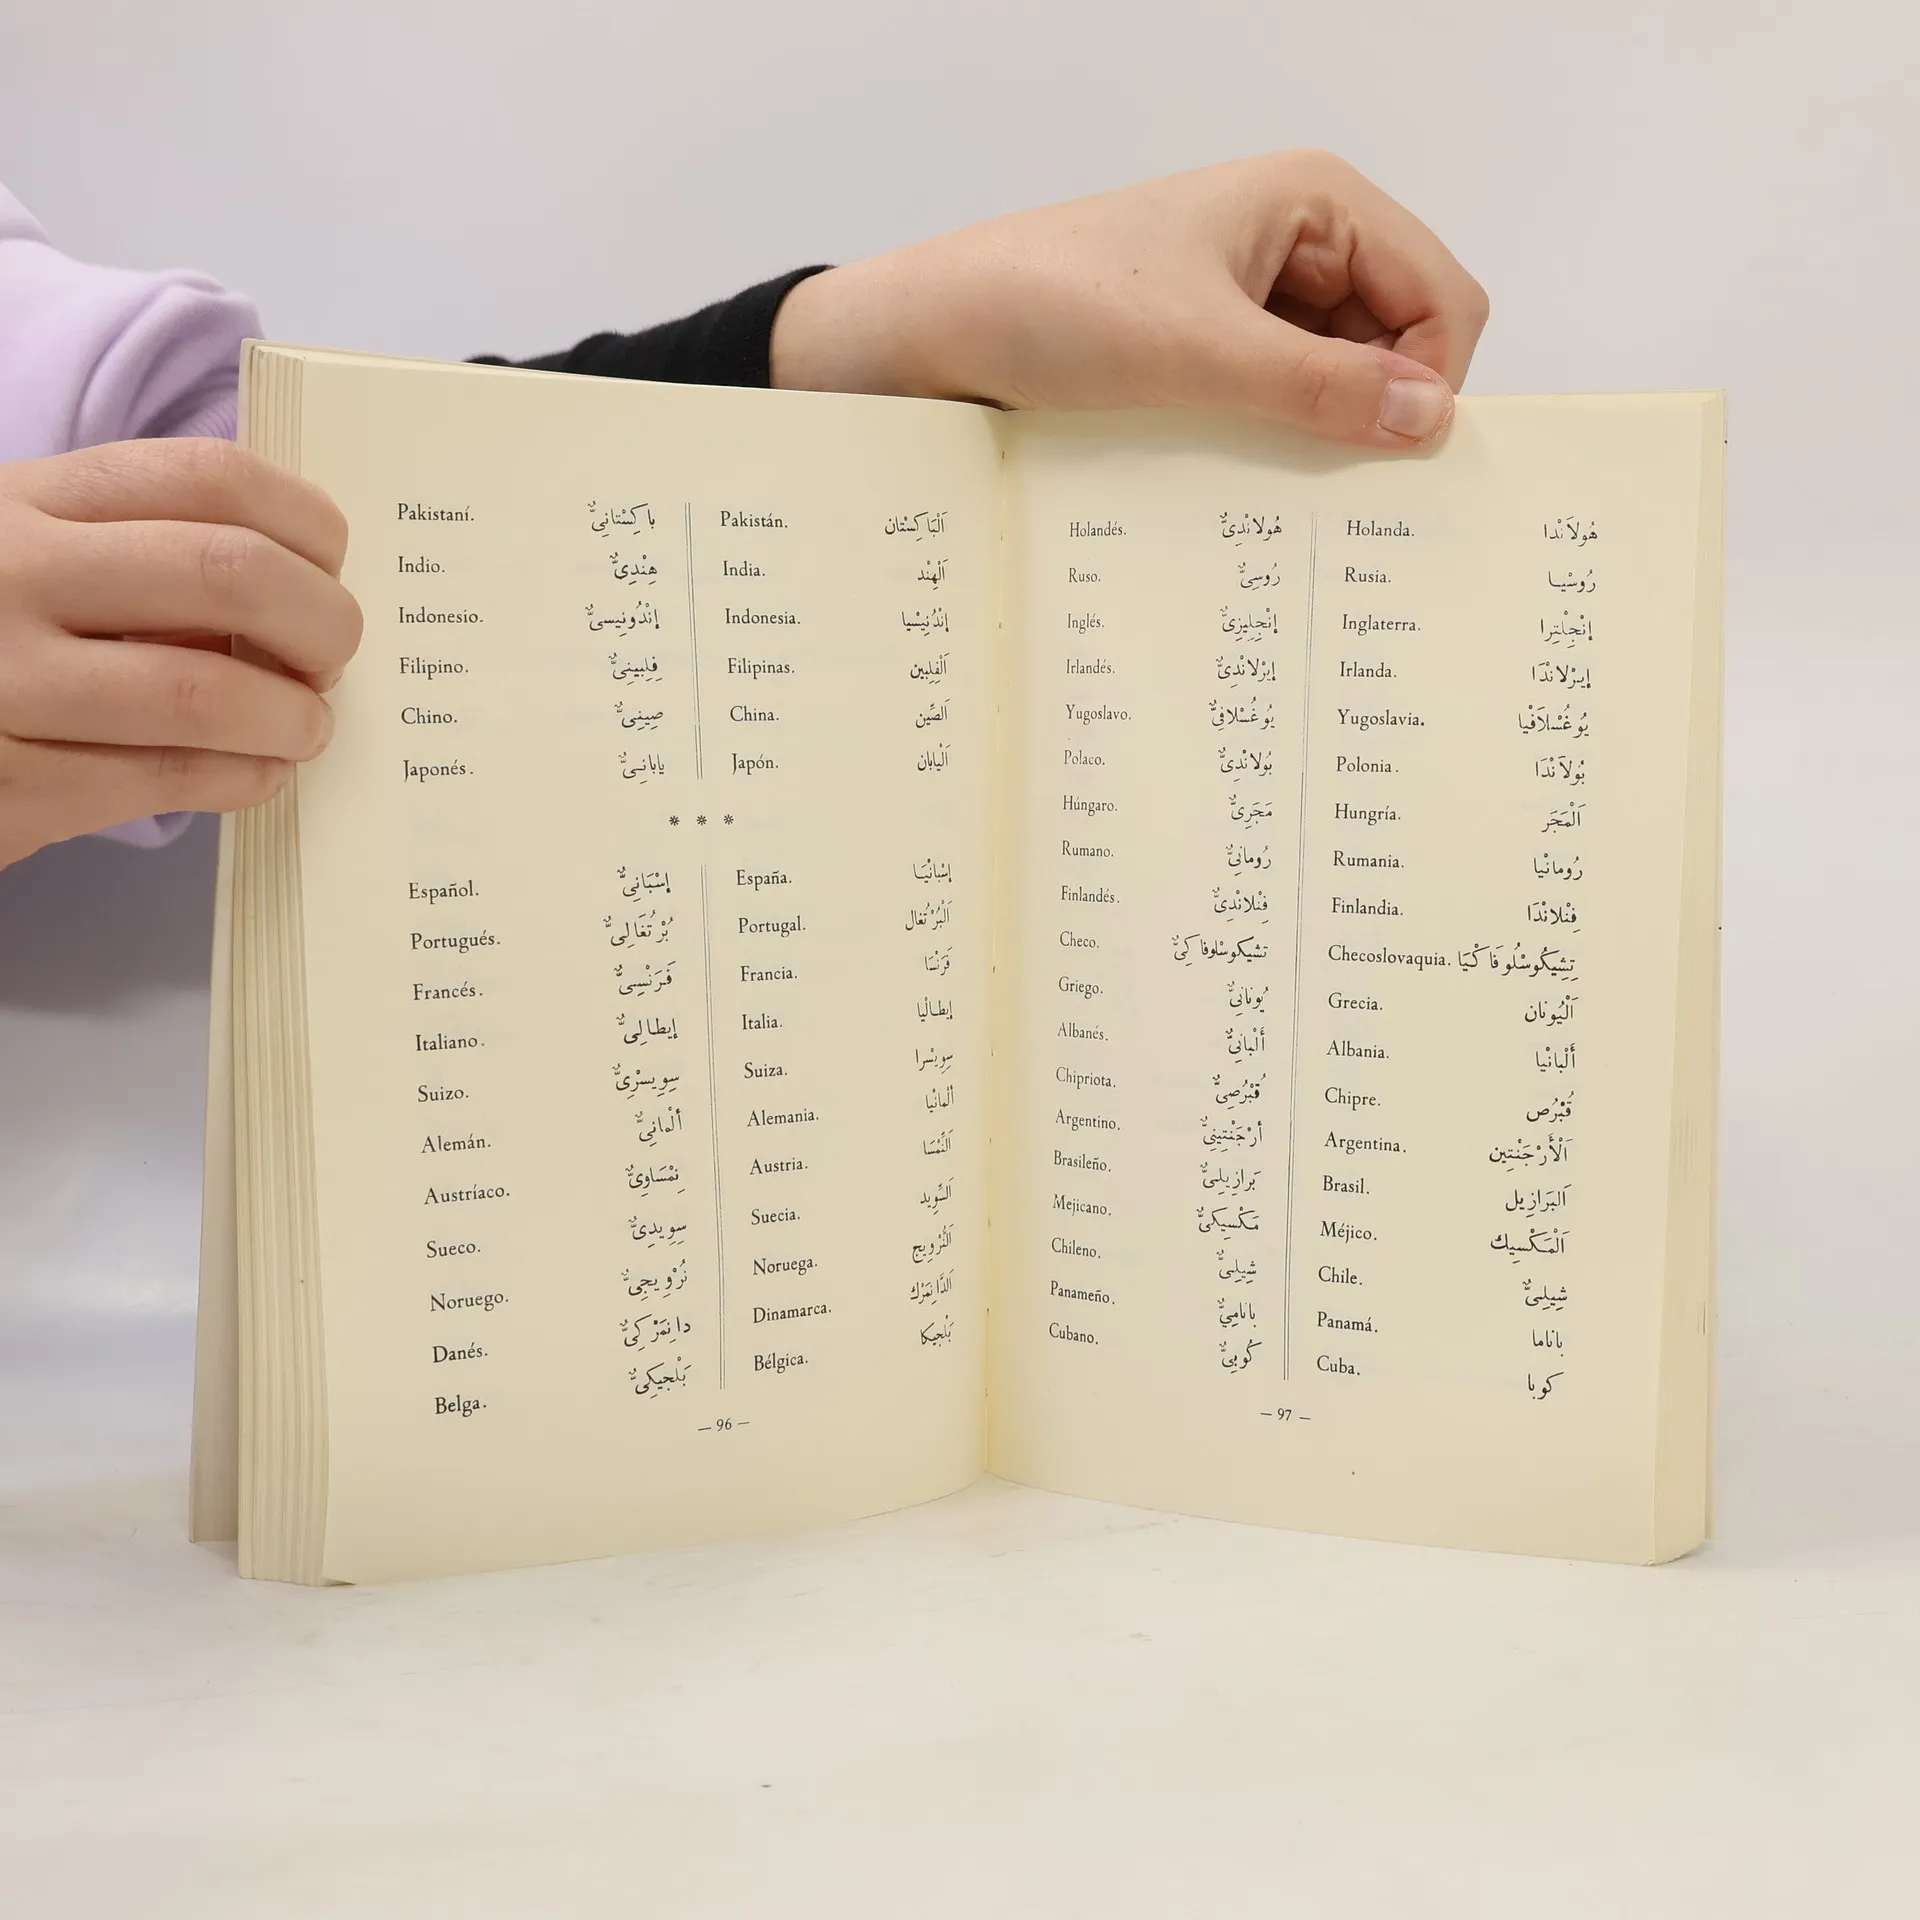 Pakistaní. باكِسْتانِيٌّ Pakistán. اَلْبَاكِسْتان
Indio. هِنْدِيٌّ India. اَلْهِنْد
Indonesio. إنْدُونِيسيٌّ Indonesia. إنْدُنِيْسْيا
Filipino. فِلِبينِيٌّ Filipinas. اَلْفِلِبين
Chino. صِينِيٌّ China. اَلصِّين
Japonés. يابانِيٌّ Japón. اَلْيَابان
* * *
Español. إسْبَانِيٌّ España. إسْبانْيَا
Portugués. بُرْتُغَالِيٌّ Portugal. اَلْبُرْتُغال
Francés. فَرَنْسِيٌّ Francia. فَرَنْسَا
Italiano. إيطالِيٌّ Italia. إيطالْيا
Suizo. سِوِيسْرِيٌّ Suiza. سِوِيسْرا
Alemán. ألْمانِيٌّ Alemania. ألْمانْيا
Austríaco. نِمْسَاوِيٌّ Austria. اَلنِّمْسَا
Sueco. سِوِيدِيٌّ Suecia. اَلسِّوِيد
Noruego. نُرْوِيجِيٌّ Noruega. اَلنُّرْوِيج
Danés. دانِمَرْكِيٌّ Dinamarca. اَلدَّانِمَرْك
Belga. بَلْجيكِيٌّ Bélgica. بَلْجيكا
— 96 —
Holandés. هُولانْدِيٌّ Holanda. هُولاَنْدا
Ruso. رُوسِيٌّ Rusia. رُوسْيـا
Inglés. إنْجِلِيزِيٌّ Inglaterra. إنْجِلْتِرا
Irlandés. إيرْلانْدِيٌّ Irlanda. إيـرْلانْدَا
Yugoslavo. يُوغُسْلافِيٌّ Yugoslavia. يُوغُسْلاَفْيا
Polaco. بُولانْدِيٌّ Polonia. بُولاَنْدَا
Húngaro. مَجَرِيٌّ Hungría. اَلْمَجَر
Rumano. رُومانِيٌّ Rumania. رُومانْيا
Finlandés. فِنْلانْدِيٌّ Finlandia. فِنْلانْدَا
Checo. تشيكوسْلوفاكِيٌّ Checoslovaquia. تِشِيكُوسْلُوفَاكْيَا
Griego. يُونانِيٌّ Grecia. اَلْيُونان
Albanés. أَلْبانِيٌّ Albania. أَلْبانْيا
Chipriota. قُبْرُصِيٌّ Chipre. قُبْرُص
Argentino. أرْجَنْتِينِيٌّ Argentina. اَلْأَرْجَنْتِين
Brasileño. بَرازِيلِيٌّ Brasil. اَلبَرازِيل
Mejicano. مَكْسِيكيٌّ Méjico. اَلْمَكْسيك
Chileno. شِيلِيٌّ Chile. شِيلِيٌّ
Panameño. بانامِيٌّ Panamá. باناما
Cubano. كُوبِيٌّ Cuba. كوبا
— 97 —